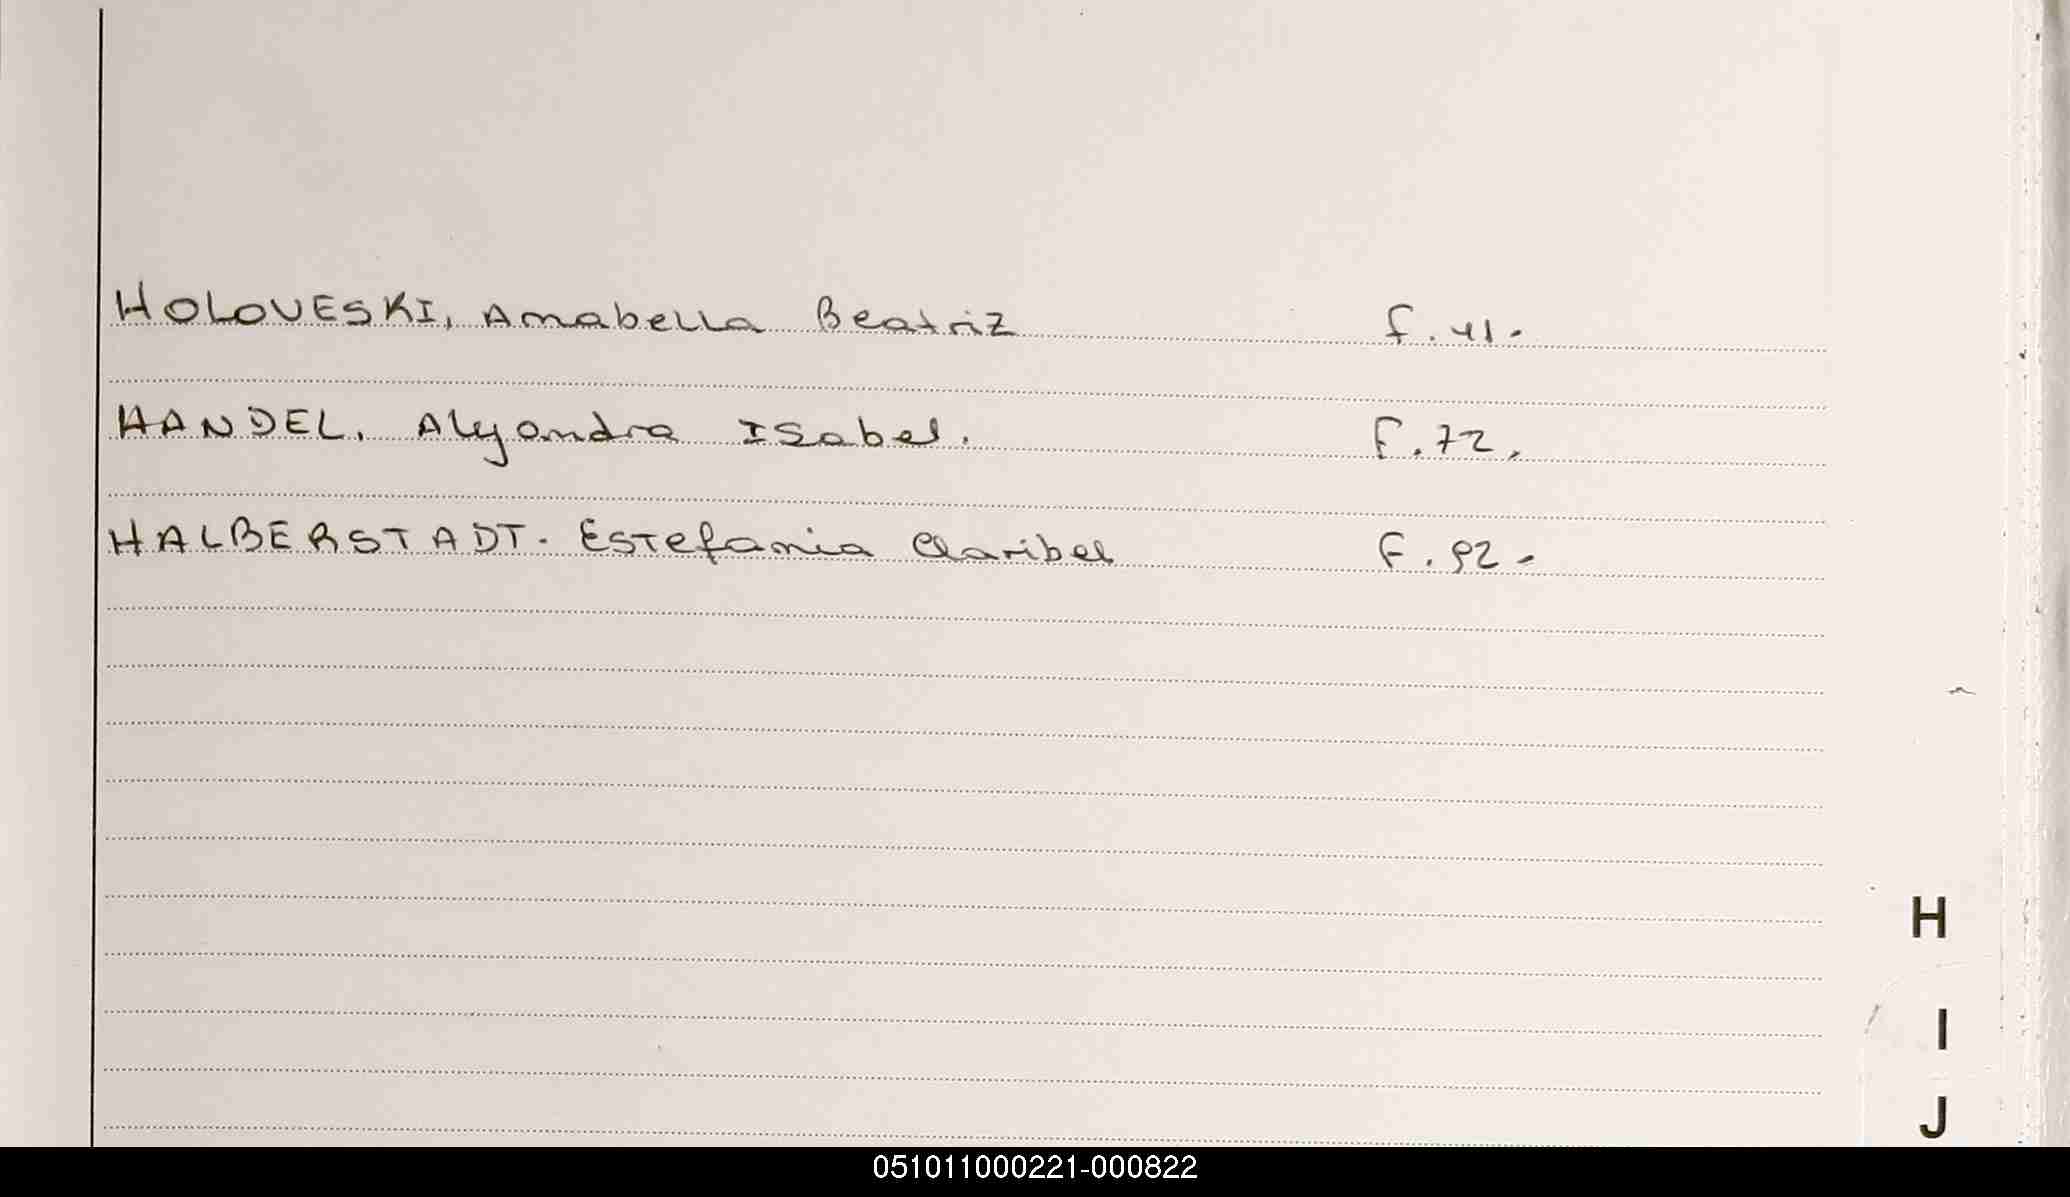 HOLOVESKI, Amabella Beatriz f.41.
HANDEL. Alejandra ISabel. F.72.
HALBERSTADT. Estefania Claribel F.92.
H
I
J
051011000221-000822